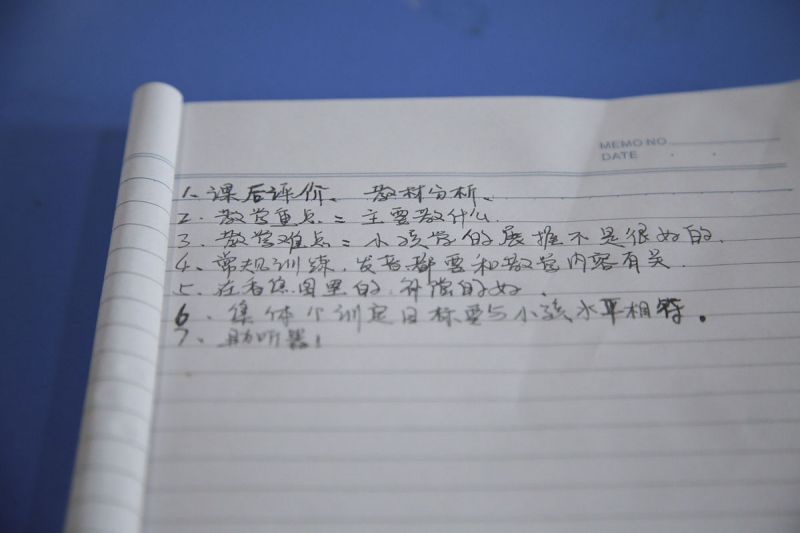 MEMO NO.
DATE . .
1、课后评价、教材分析、
2、教学重点 = 主要教什么.
3、教学难点 = 小孩学的 不是很好的.
4、常规训练，发音都要和教学内容有关
5、在香蕉图里的，补偿的好、
6、集体个训定目标要与小孩水平相符。
7、助听器！